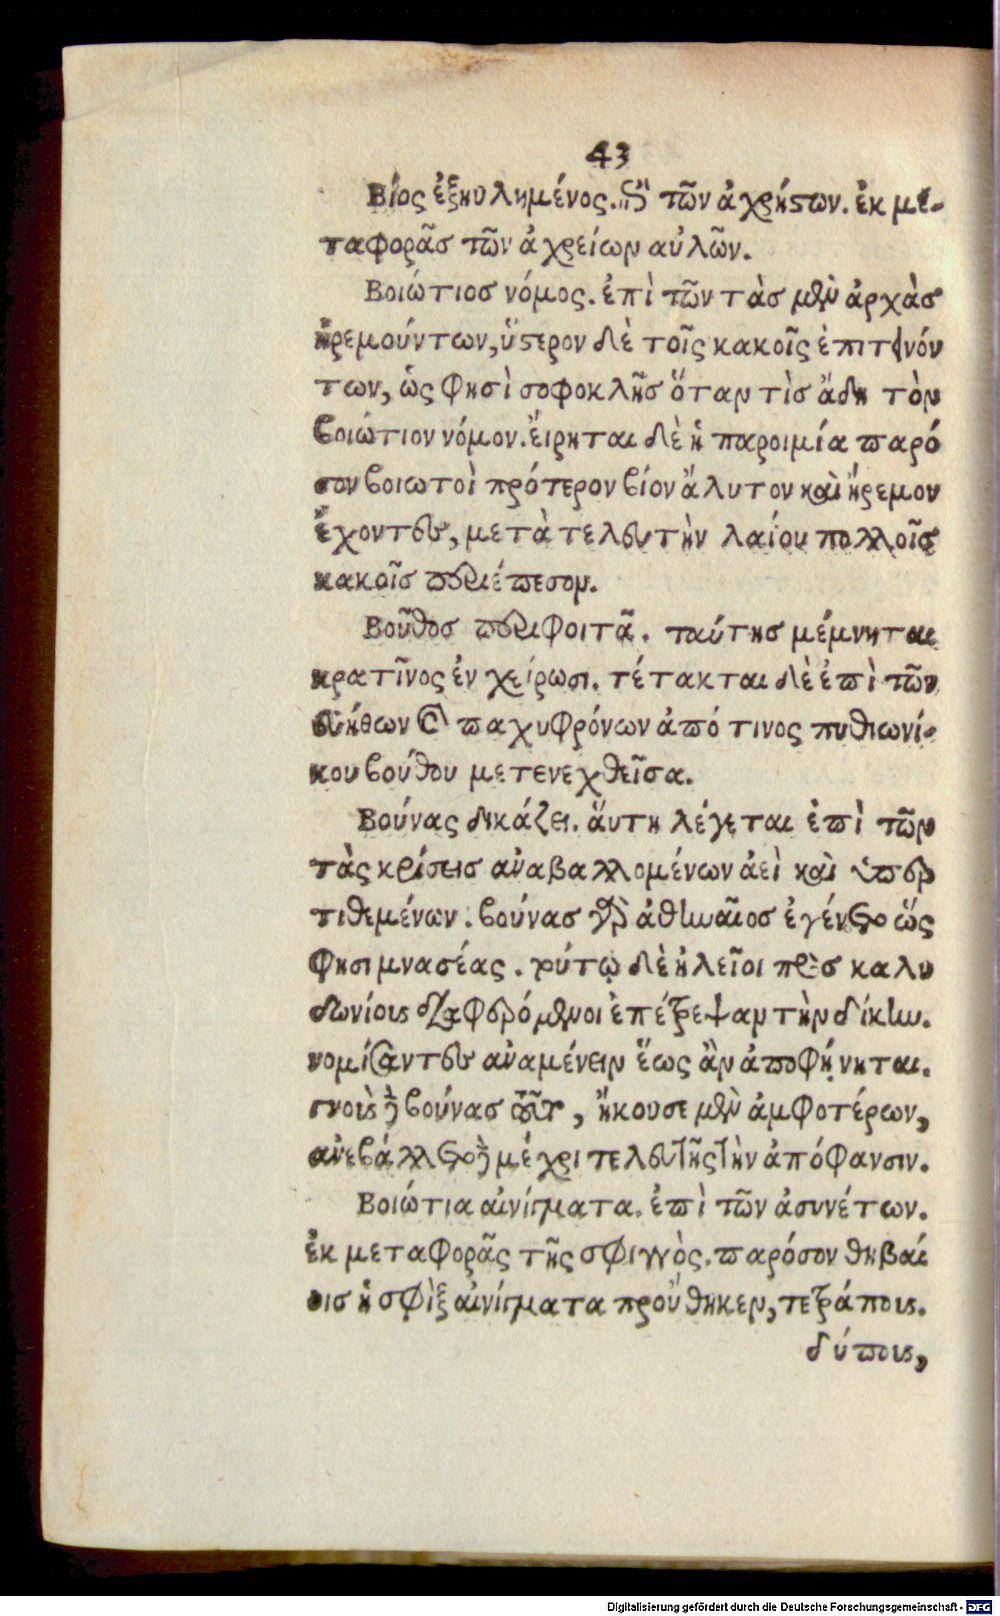 43
Βίος ἐξηυλημένος. ἐπὶ τῶν ἀχρήστων. ἐκ με-
ταφορᾶς τῶν ἀχρείων αὐλῶν.
Βοιώτιος νόμος. ἐπὶ τῶν τὰς μὲν ἀρχὰς
ἠρεμούντων, ὕστερον δὲ τοῖς κακοῖς ἐπιτεινόν
των, ὥς φησὶ σοφοκλῆς ὅταν τὶς ἄδῃ τὸν
βοιώτιον νόμον. ἔιρηται δὲ ἡ παροιμία παρό
σον βοιωτοὶ πρότερον βίον ἄλυτον καὶ ἤρεμον
ἔχοντες, μετὰ τελευτὴν λαίου πολλοῖς
κακοῖς περιέπεσον.
Βοῦθος περιφοιτᾶ. ταύτης μέμνηται
κρατῖνος ἐν χείρωσι. τέτακται δὲ ἐπὶ τῶν
εὐήθων καὶ παχυφρόνων ἀπό τινος πυθιωνί-
κου βούθου μετενεχθεῖσα.
Βούνας δικάζει. ἅυτη λέγεται ἐπὶ τῶν
τὰς κρίσεις ἀναβαλλομένων ἀεὶ καὶ ὑπερ
τιθεμένων. βούνας γὰρ ἀθηναῖος ἐγένετο ὥς
φησι μνασέας. τούτῳ δὲ ἠλεῖοι πρὸς καλυ
δωνίους διαφερόμενοι ἐπέτρεψαν τὴν δίκην.
νομίσαντες ἀναμένειν ἕως ἂν ἀποφήνηται.
γνοὺς δὲ βούνας τοῦτο, ἤκουσε μὲν ἀμφοτέρων,
ἀνεβάλλετο δὲ μέχρι τελευτῆς τὴν ἀπόφανσιν.
Βοιώτια αἰνίγματα. ἐπὶ τῶν ἀσυνέτων.
ἐκ μεταφορᾶς τῆς σφιγγὸς. παρόσον θηβαί
οις ἡ σφὶξ αἰνίγματα προὔθηκεν, τετράπους.
δύπους,
Digitalisierung gefördert durch die Deutsche Forschungsgemeinschaft - DFG